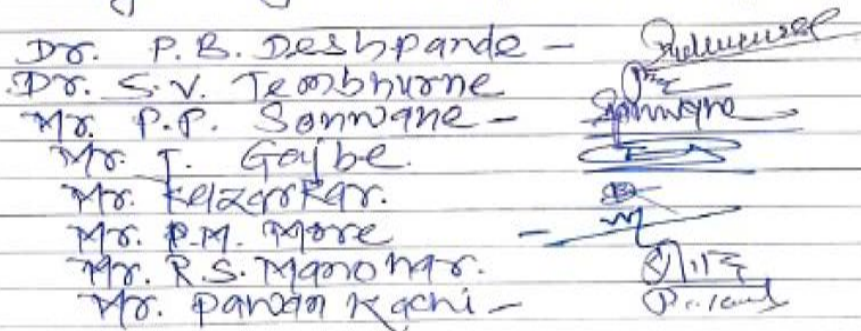 Dr. P. B. Deshpande -
Dr. S. V. Tembhurne
Mr. P.P. Sonwane - Sonwane
Mr. T. Gajbe.
Mr. Kelzarkar.
Mr. P.M. More -
Mr. R.S. Manohar.
Mr. Pawan Kachi -